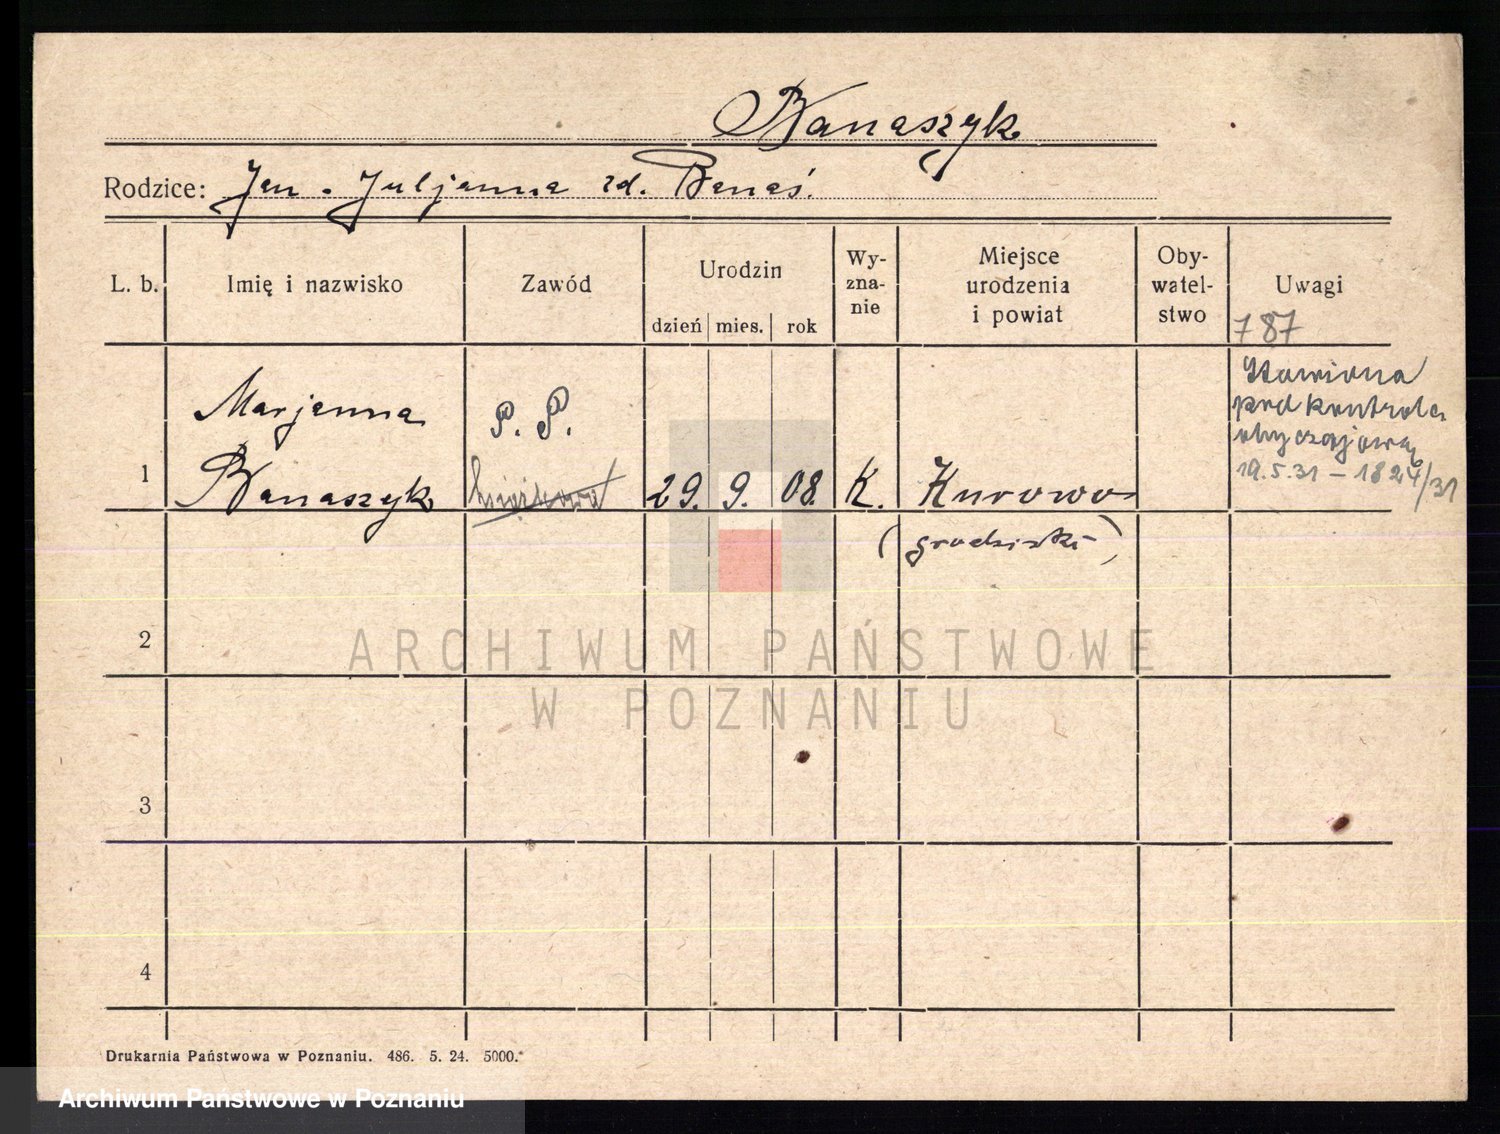 Banaszyk
Rodzice: Jan - Juljanna zd. Banaś.
L. b. Imię i nazwisko Zawód Urodzin dzień mies. rok Wy-zna-nie Miejsce urodzenia i powiat Oby-watel-stwo Uwagi
787
1 Marjanna Banaszyk P. P. 29. 9. 08. K. Kurowo
(grodziski)
Stawiona
pod kontrolę
obyczajową
19.5.31 - 1824/31
2
3
4
Drukarnia Państwowa w Poznaniu. 486. 5. 24. 5000.
ARCHIWUM PAŃSTWOWE
W POZNANIU
Archiwum Państwowe w Poznaniu